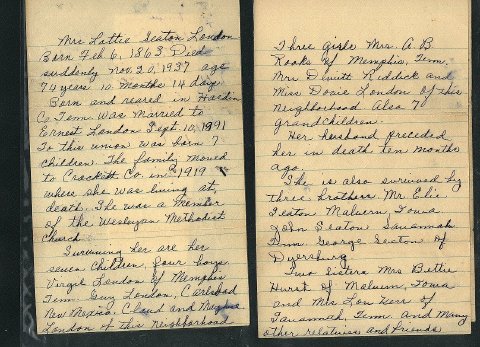 Mrs Lattie Seaton London
Born Feb 6, 1863. Died
suddenly Nov. 20, 1937 age
74 years 10. Months 14 days
Born and reared in Hardin
Co Tenn. was Married to
Ernest London Sept. 10, 1891
To this union was born 7
children. The family moved
to Crockett Co. in 1919
where she was living at
death. She was a Member
of the Wesleyan Methodist
Church.
Surviving her are her
seven children, four boys
Virgil London of Memphis
Tenn. Guy London, Carlsbad
New Mexico. Cloud and
London of this neighborhood
Three girls Mrs. A. B.
Rooks of Memphis, Tenn.
Mrs Dewitt Riddick and
Miss Docie London of this
Neighborhood Also 7
grandchildren.
Her husband preceded
her in death ten months
ago.
She is also survived by
three brothers Mr. Elic
Seaton Malvern, Iowa
John Seaton Savannah
Tenn. George Seaton of
Dyersburg
Two Sisters Mrs Bettie
Hurst of Malvern, Iowa
and Mrs Lou Kerr of
Savannah, Tenn. and Many
other relatives and friends